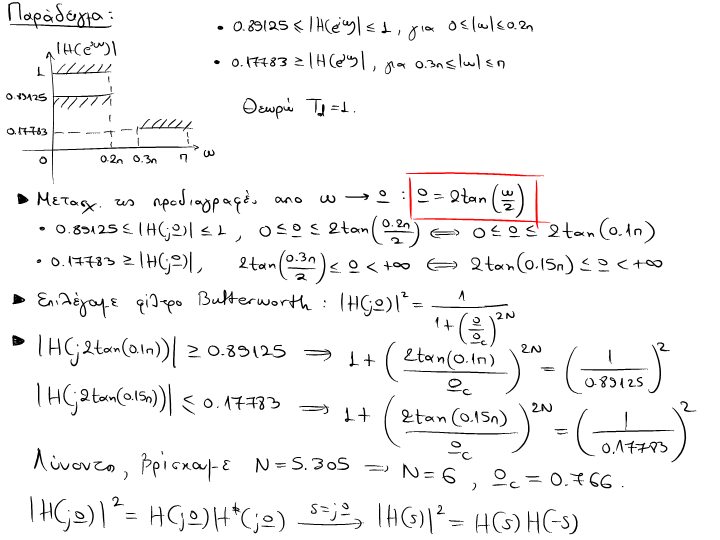 Παράδειγμα:
• 0.89125 ≤ |H(e^{jω})| ≤ 1, για 0≤|ω|≤0.2π
• 0.17783 ≥ |H(e^{jω})|, για 0.3π≤|ω|≤π
Θεωρώ T_d = 1.
|H(e^{jω})|
1
0.89125
0.17783
0 0.2π 0.3π π ω
▶ Μετασχ. τις προδιαγραφές από ω → Ω : Ω = 2tan(ω/2)
• 0.89125 ≤ |H(jΩ)| ≤ 1, 0 ≤ Ω ≤ 2tan(0.2π/2) ⟺ 0 ≤ Ω ≤ 2tan(0.1π)
• 0.17783 ≥ |H(jΩ)|, 2tan(0.3π/2) ≤ Ω < +∞ ⟺ 2tan(0.15π) ≤ Ω < +∞
▶ Επιλέγομε φίλτρο Butterworth : |H(jΩ)|² = 1/(1+(Ω/Ω_c)^{2N})
▶ |H(j2tan(0.1π))| ≥ 0.89125 ⟹ 1 + (2tan(0.1π)/Ω_c)^{2N} = (1/0.89125)²
|H(j2tan(0.15π))| ≤ 0.17783 ⟹ 1 + (2tan(0.15π)/Ω_c)^{2N} = (1/0.17783)²
Λύνοντας, βρίσκομε N = 5.305 ⟹ N = 6, Ω_c = 0.766.
|H(jΩ)|² = H(jΩ) H*(jΩ) —s=jΩ→ |H(s)|² = H(s) H(-s)